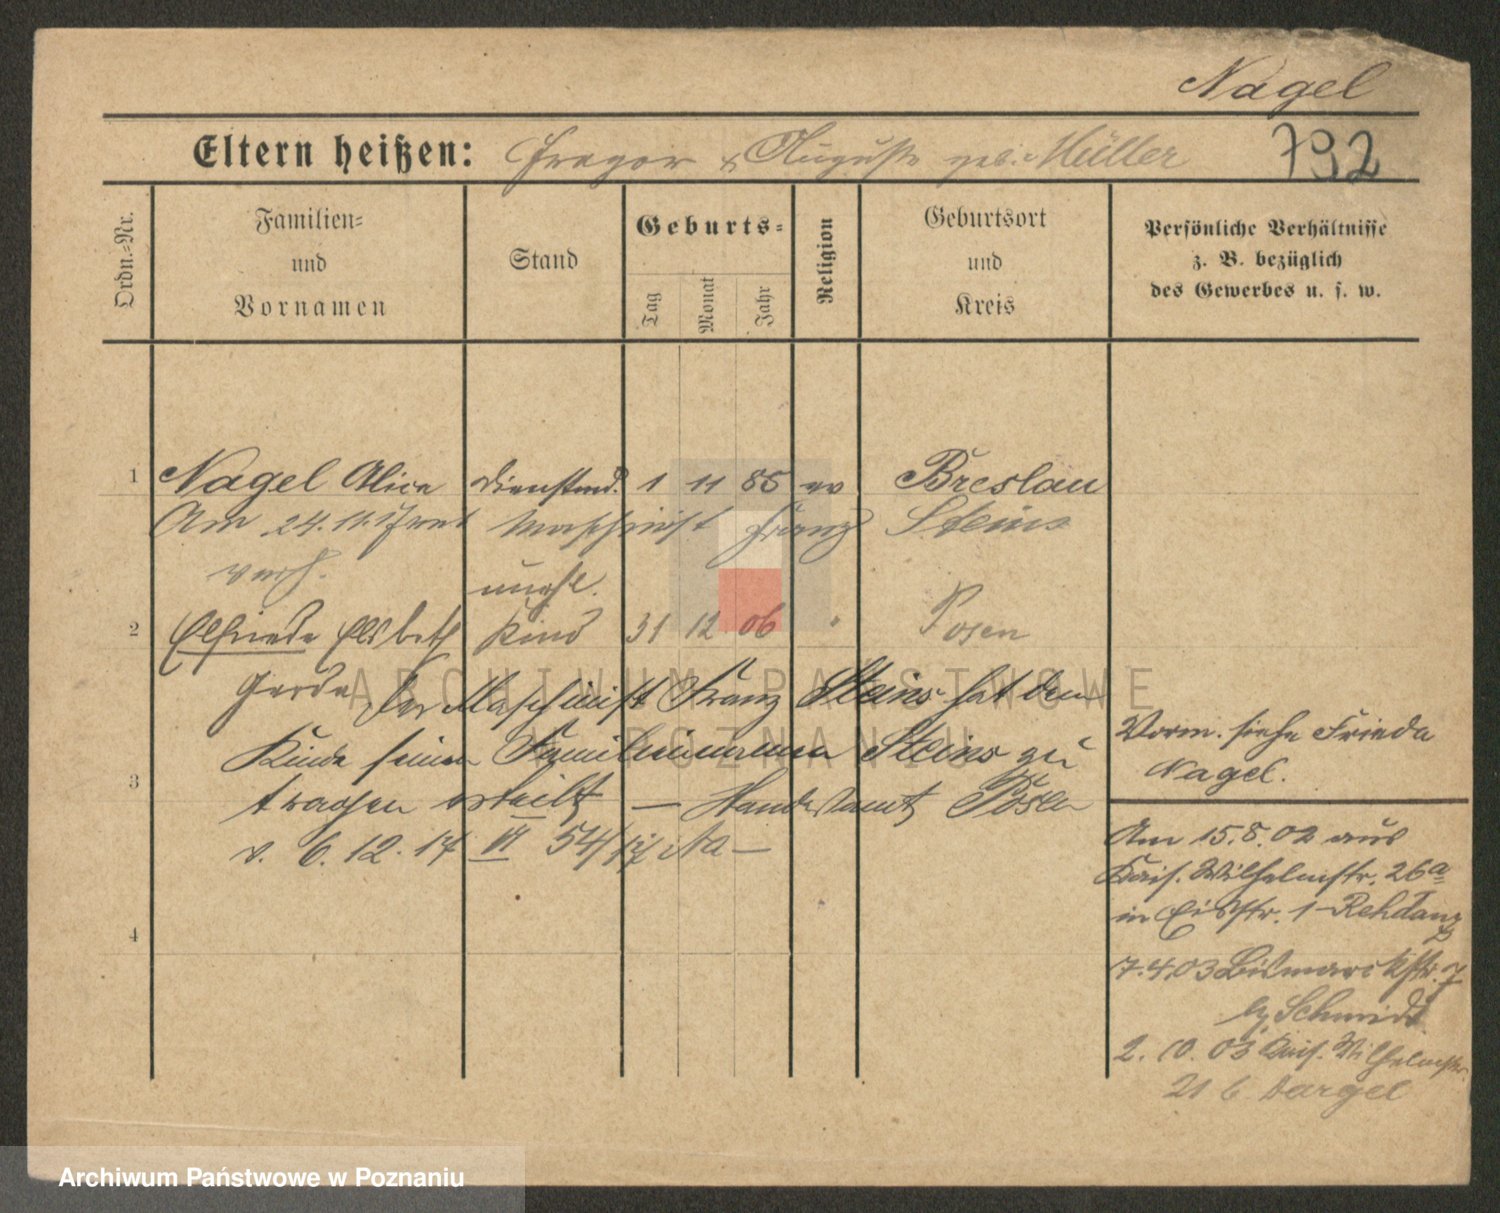 Nagel
Eltern heißen: Gregor & Auguste geb. Müller 792
Ordn.-Nr.
Familien- und Vornamen
Stand
Geburts-
Tag
Monat
Jahr
Religion
Geburtsort und Kreis
Persönliche Verhältnisse
z. B. bezüglich
des Gewerbes u. s. w.
1 Nagel Alice Dienstmd. 1 11 85 ev Breslau
Am 24. 11. Maschinist Franz Steins
verh.
unehl.
2 Elfriede Elsbeth Kind 31 12 06 " Posen
Gerda Der Maschinist Franz Steins hat dem
Kinde seinen Familiennamen Steins zu
3
tragen erteilt — Standesamt Posen
v. 6. 12. 17 VI 54/17
4
Vorm. siehe Frieda
Nagel.
Am 15. 8. 02 aus
Kais. Wilhelmstr. 26a
in Eichstr. 1 Rehdanz
7. 4. 03 Bismarckstr. 7
b. Schmidt
2. 10. 03 Kais. Wilhelmstr.
21 b. Dargel
ARCHIWUM PAŃSTWOWE
W POZNANIU
Archiwum Państwowe w Poznaniu